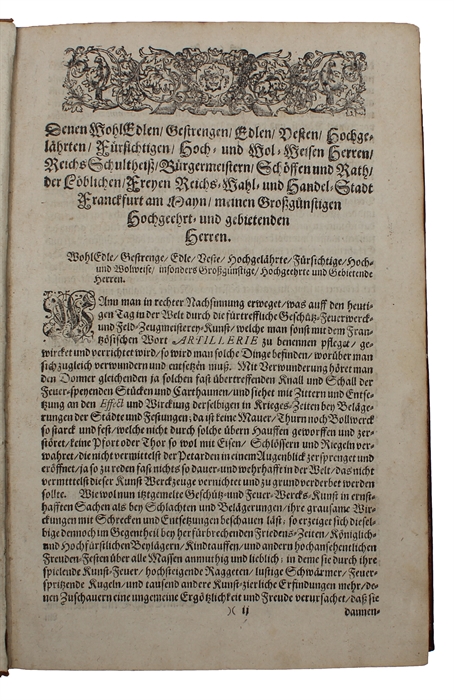 Denen WohlEdlen/ Gestrengen/ Edlen/ Vesten/ Hochge-
lährten/ Fürsichtigen/ Hoch- und Wol-Weisen Herren/
Reichs Schultheiß/ Bürgermeistern/ Schöffen und Rath/
der Löblichen/ Freyen Reichs-Wahl- und Handel-Stadt
Franckfurt am Mayn/ meinen Großgünstigen
Hochgeehrt- und gebietenden
Herren.
WohlEdle/ Gestrenge/ Edle/ Veste/ Hochgelährte/ Fürsichtige/ Hoch-
und Wolweise/ insonders Großgünstige/ Hochgeehrte und Gebietende
Herren.
WAnn man in rechter Nachsinnung erweget/ was auff den heuti-
gen Tag in der Welt durch die fürtreffliche Geschütz-Feuerwerck-
und Feld-Zeugmeisterey-Kunst/ welche man sonst mit dem Fran-
tzösischen Wort ARTILLERIE zu benennen pfleget/ ge-
wircket und verrichtet wird/ so wird man solche Dinge befinden/ worüber man
sich zugleich verwundern und entsetzen muß. Mit Verwunderung höret man
den Donner gleichenden ja solchen fast übertreffenden Knall und Schall der
Feuer-speyenden Stücken und Carthaunen/ und siehet mit Zittern und Entse-
tzung an den Effect und Wirckung derselbigen in Krieges-Zeiten bey Beläge-
rungen der Städte und Festungen; da ist keine Mauer/ Thurn noch Bollwerck
so starck und fest/ welche nicht durch solche übern Hauffen geworffen und zer-
störet/ keine Pfort oder Thor so wol mit Eisen/ Schlössern und Riegeln ver-
wahret/ die nicht vermittelst der Petarden in einem Augenblick zersprenget und
eröffnet/ ja so zu reden fast nichts so dauer- und wehrhafft in der Welt/ das nicht
vermittelst dieser Kunst Werckzeuge vernichtet und zu grund verderbet werden
solte. Wie wol nun itztgemelte Geschütz- und Feuer-Wercks-Kunst in ernst-
hafften Sachen als bey Schlachten und Belägerungen/ ihre grausame Wir-
ckungen mit Schrecken und Entsetzungen beschauen läst; so erzeiget sich diesel-
bige dennoch im Gegentheil bey herfürbrechenden Friedens-Zeiten/ Königlich-
und Hochfürstlichen Beylägern/ Kindtauffen/ und andern hochansehentlichen
Freuden-Festen über alle Massen anmuthig und lieblich; in deme sie durch ihre
spielende Kunst-Feuer/ hochsteigende Raggeten/ lustige Schwärmer/ Feuer-
spritzende Kugeln/ und tausend andere Kunst-zierliche Erfindungen mehr/ de-
nen Zuschauern eine ungemeine Ergötzlichkeit und Freude verursachet/ daß sie
)( ij
dannen-